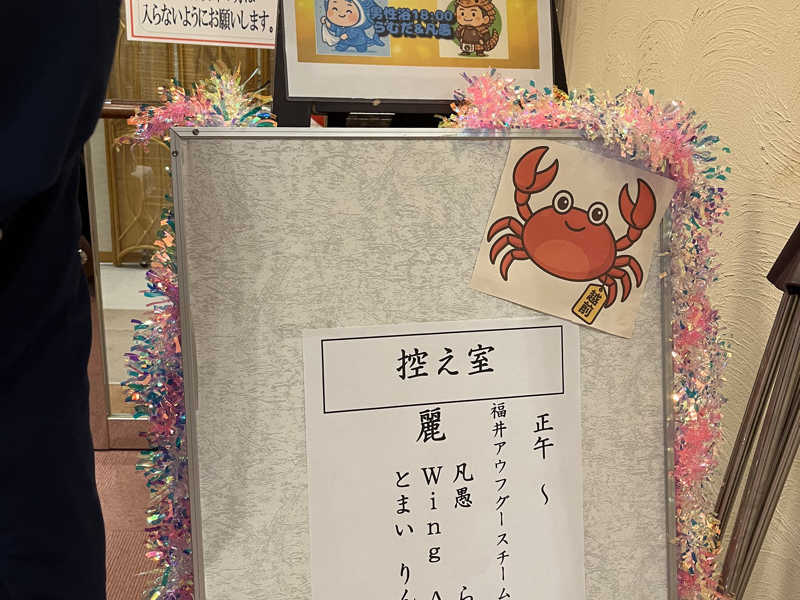 入らないようにお願いします。
男性浴18:00
らむだ&凡愚
越前
控え室
正午〜
福井アウフグースチーム
麗
凡愚 ら
Wing A
とまい りん